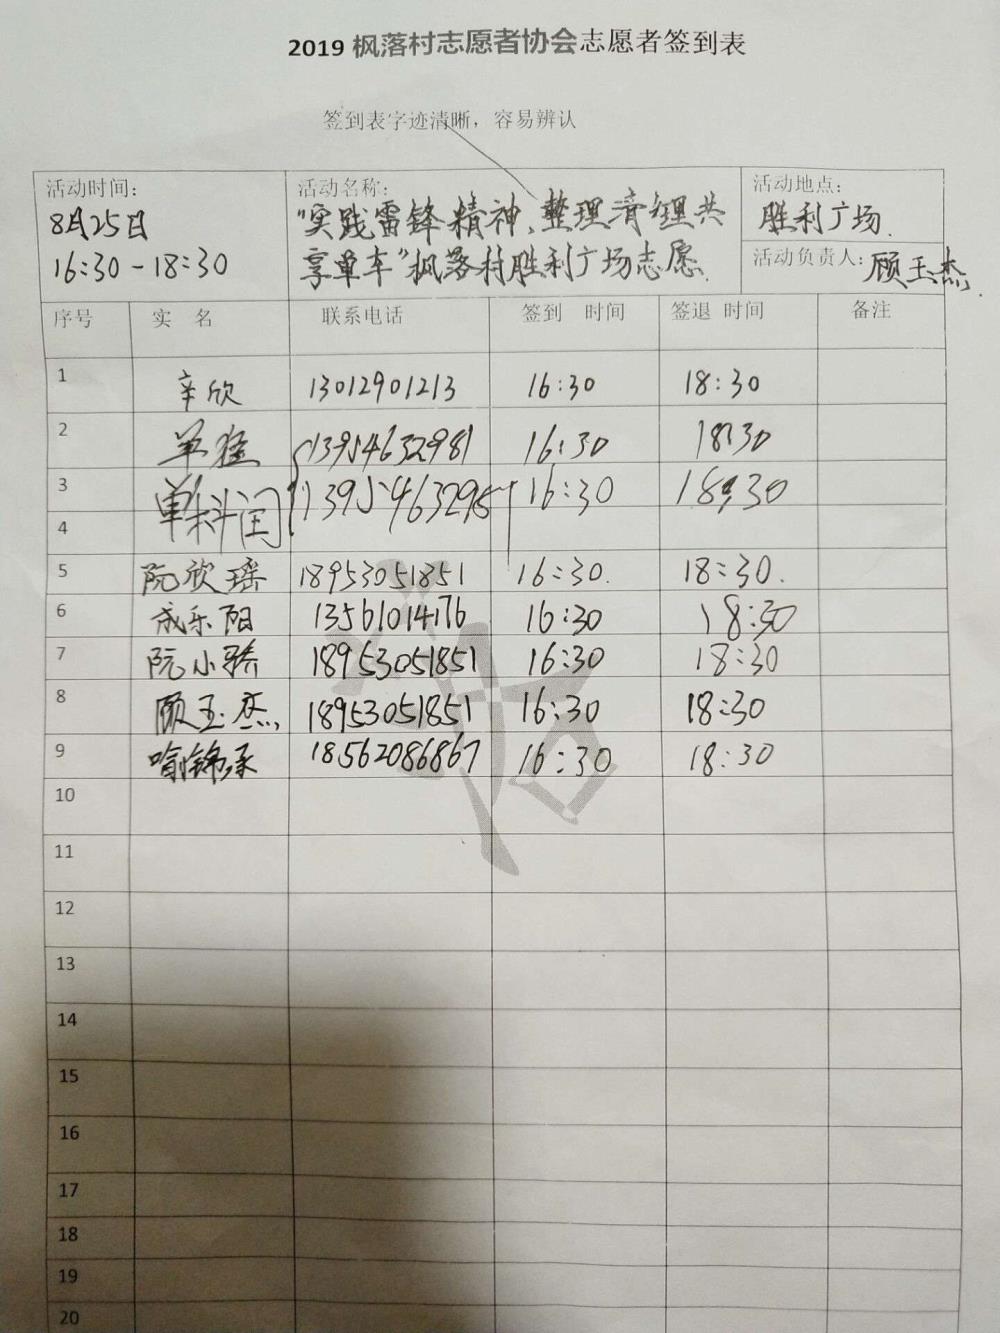 2019 枫落村志愿者协会志愿者签到表
签到表字迹清晰，容易辨认
活动时间： 活动名称： 活动地点：
8月25日 "实践雷锋精神、整理清理共 胜利广场.
16:30-18:30 享单车"枫落村胜利广场志愿. 活动负责人：顾玉杰.
序号 实 名 联系电话 签到 时间 签退 时间 备注
1 辛欣 13012901213 16:30 18:30
2 单猛 13954632981 16:30 18:30
3 单科闰 16:30 18:30
4
5 阮欣瑶 18953051851 16:30. 18:30.
6 成乐阳 13561014176 16:30 18:30
7 阮小骄 18953051851 16:30 18:30
8 顾玉杰. 18953051851 16:30 18:30
9 喻锦承 18562086867 16:30 18:30
10
11
12
13
14
15
16
17
18
19
20